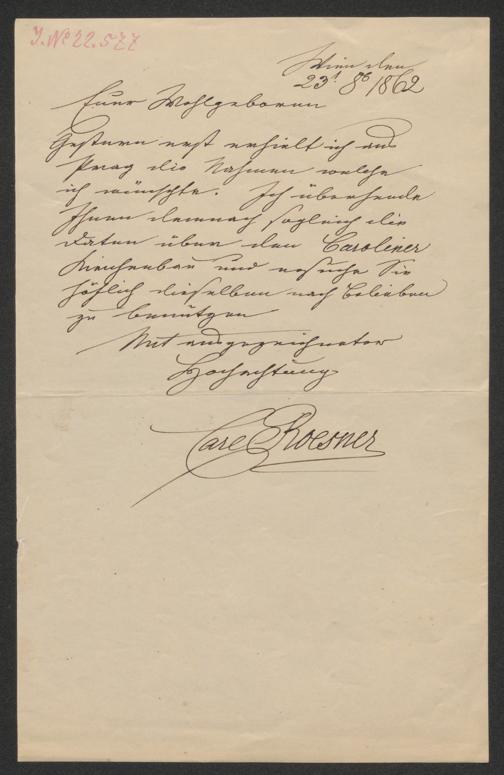 J. Nº 22.577
Wien den
23t 8b 1862
Euer Wohlgeboren
Gestern erst erhielt ich aus
Prag die Nahmen welche
ich wünschte. Ich übersende
Ihnen demnach sogleich die
Daten über den Caroliner
Kirchenbau und ersuche Sie
höflich dieselben nach Belieben
zu benützen
Mit ausgezeichneter
Hochachtung
Carl Roesner